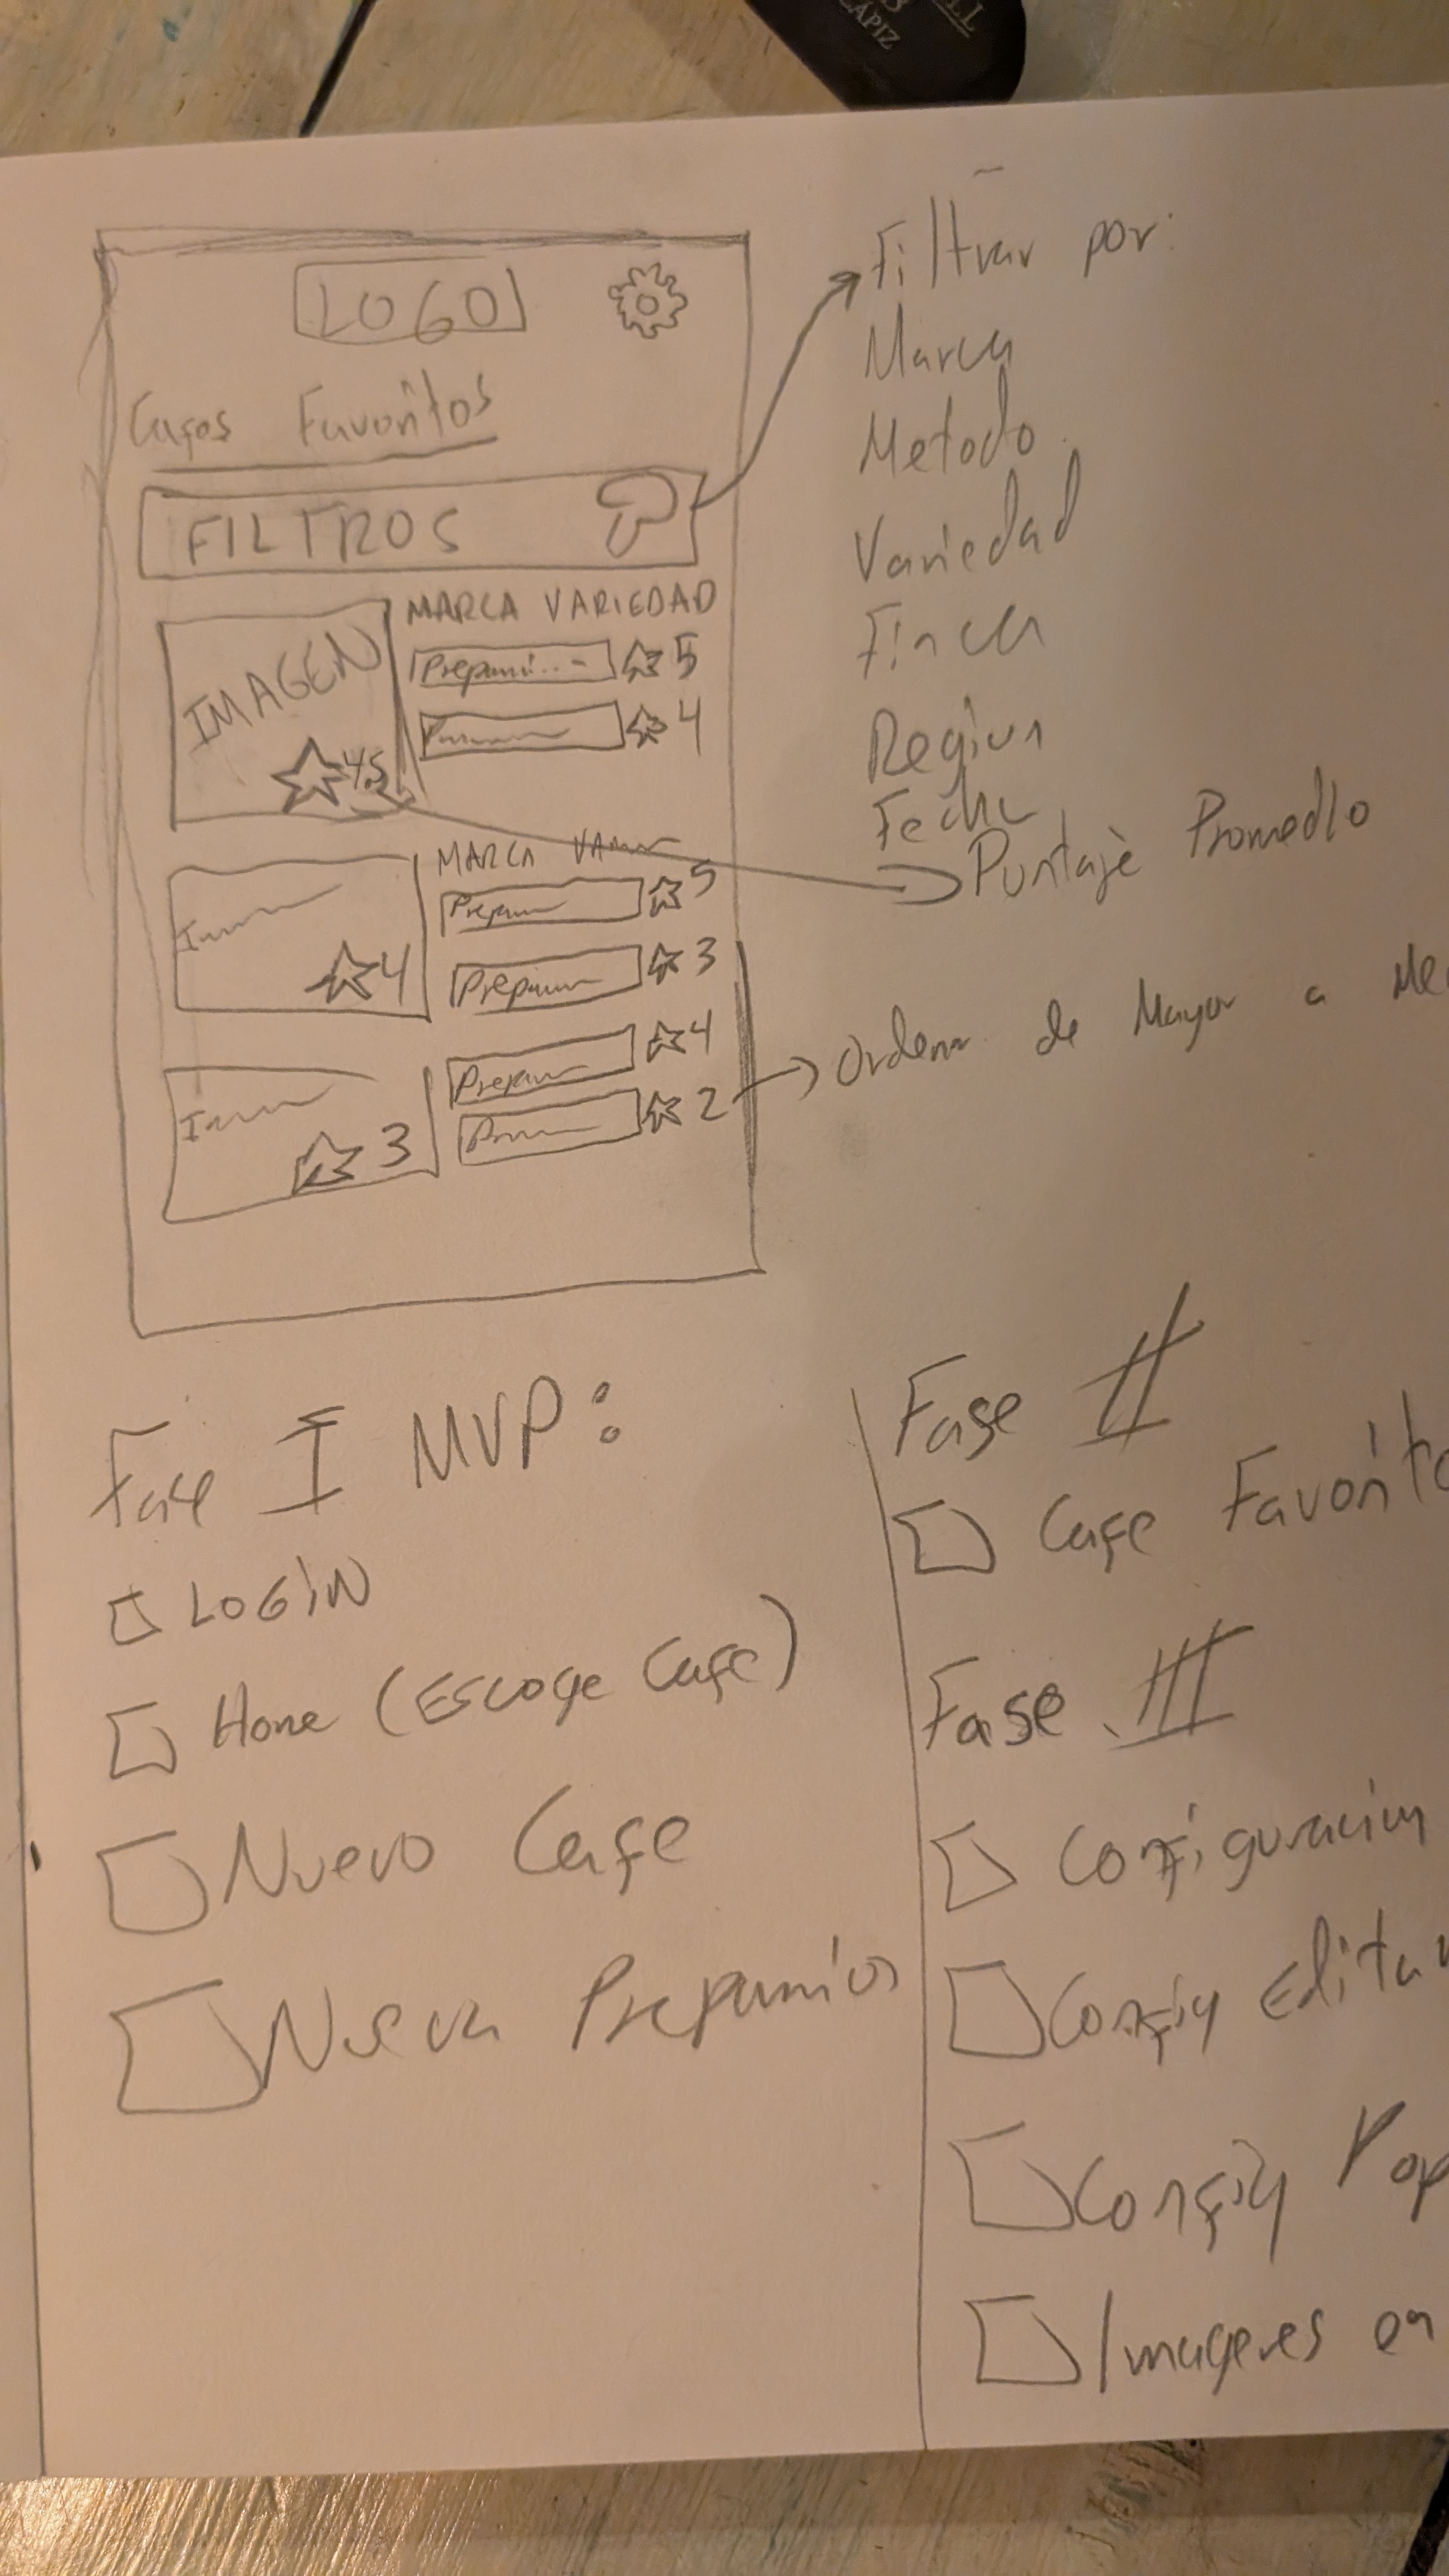 LÁPIZ
LOGO
Cafes Favoritos
FILTROS
IMAGEN
4.5
MARCA VARIEDAD
5
4
MARCA
4
5
3
3
4
2
Filtrar por:
Marca
Metodo
Variedad
Finca
Region
Fecha
Puntaje Promedio
Ordenar de Mayor a Me
Fase I MVP:
LOGIN
Home (Escoge Cafe)
Nuevo Cafe
Nueva
Fase II
Cafe Favorito
Fase III
Configuracion
Config Editar
Config Pop
Imagenes en